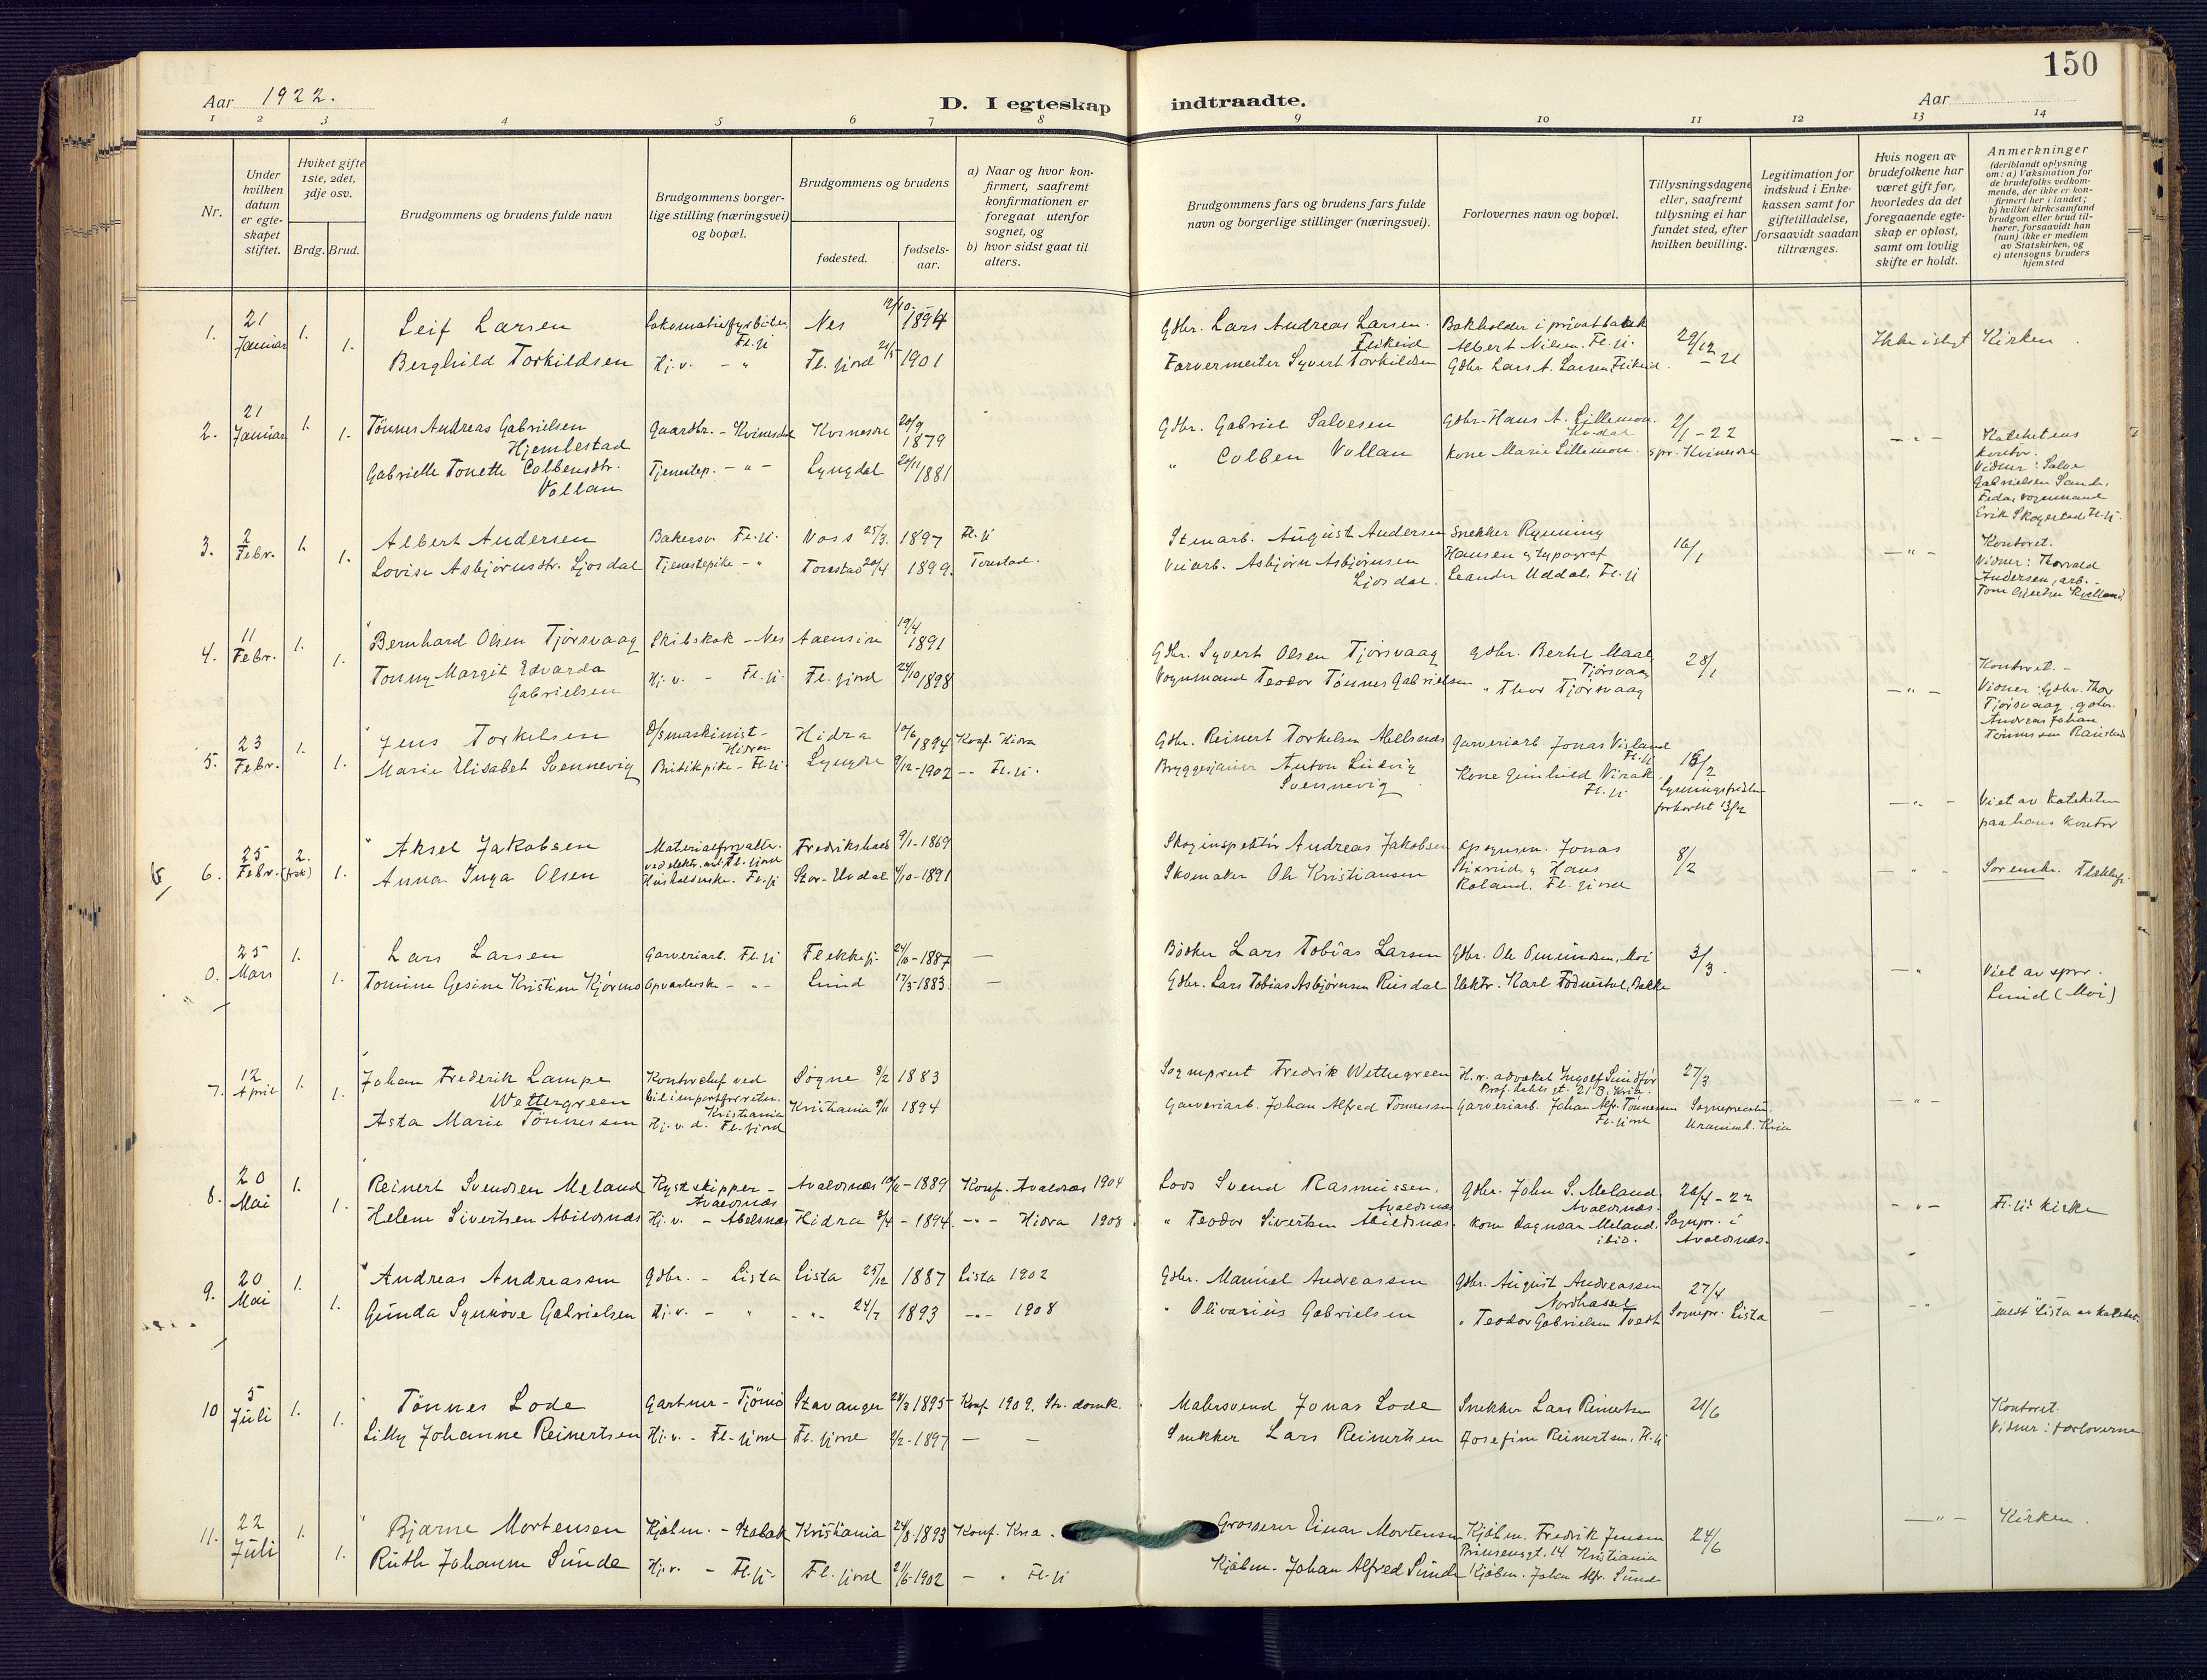 150
Aar 1922.
D. I egteskap indtraadte.
Aar
1 2 3 4 5 6 7 8 9 10 11 12 13 14
Nr.
Under hvilken datum er egte-skapet stiftet.
Hvilket gifte 1ste, 2det, 3dje osv.
Brdg. Brud.
Brudgommens og brudens fulde navn
Brudgommens borger-lige stilling (næringsvei) og bopæl.
Brudgommens og brudens
fødested.
fødsels-aar.
a) Naar og hvor kon-firmert, saafremt konfirmationen er foregaat utenfor sognet, og
b) hvor sidst gaat til alters.
Brudgommens fars og brudens fars fulde navn og borgerlige stillinger (næringsvei).
Forlovernes navn og bopæl.
Tillysningsdagene eller, saafremt tillysning ei har fundet sted, efter hvilken bevilling.
Legitimation for indskud i Enke-kassen samt for giftetilladelse, forsaavidt saadan tiltrænges.
Hvis nogen av brudefolkene har været gift før, hvorledes da det foregaaende egte-skap er opløst, samt om lovlig skifte er holdt.
Anmerkninger
(deriblandt oplysning om: a) Vaksination for de brudefolks vedkom-mende, der ikke er kon-firmert her i landet; b) hvilket kirkesamfund brudgom eller brud til-hører, forsaavidt han (hun) ikke er medlem av Statskirken, og c) utensogns bruders hjemsted
1. 21 Januar 1. Leif Larsen Lokomotivfyrbøter Fl.fj. Nes 12/10 1894 Gdbr. Lars Andreas Larsen. Flikeid Bokholder i privatbank Albert Nilsen. Fl.fj. 29/12 - 21 Ikke i slegt Kirken.
1. Berghild Torkildsen Hj.v. - " Fl.fjord 1901 Farvermester Syvert Torkildsen Gdbr. Lars A. Larsen Flikeid.
2. 21 Januar 1. Tønnes Andreas Gabrielsen Hjemlestad Gaardbr. - Kvinesdal Kvinesdal 20/9 1879 Gdbr. Gabriel Salvesen Gdbr. Hans A. Lillemon. 2/1 - 22 - " - Katekets kontor.
1. Gabrielle Tonette Colbensdtr. Vollan Tjenestep. - " - Lyngdal 1881 " Colben Vollan Kone Marie Lillemon. spr. Kvinesdal Vidner: Salve Gabrielsen Sand, Feda, vognmand Erik Skogestad Fl.fj.
3. 2 Febr. 1. Albert Andersen Bakersv. Fl.fj. Voss 25/3. 1897 Fl.fj Stenarb. August Andersen Snekker Rynning Hansen og typograf 16/1 - " - Kontoret.
1. Lovise Asbjørnsdtr. Ljosdal Tjenestepike - " Tonstad 20/4 1899. Tonstad. Veiarb. Asbjørn Asbjørnsen Ljosdal. Leander Uddal. Fl.fj Vidner: Thorvald Andersen, arb. -
4. 11 Febr. 1. Bernhard Olsen Tjørsvaag Skibskok - Nes 19/4 1891 Gdbr. Syvert Olsen Tjørsvaag gdbr. Bertel Maal Tjørsvaag 28/1 Kontoret. -
1. Tonny Margit Edvarda Gabrielsen Hj.v. - Fl.fj. Fl.fjord 24/10 1898 Vognmand Teodor Tønnes Gabrielsen " Thor Tjørsvaag - " - Vidner: Gdbr. Thor Tjørsvaag, gdbr. Andreas Johan Tønnessen
5. 23 Febr. 1. Jens Torkelsen D/smaskinist - Hidra Hidra 1894 Konf. Hidra Gdbr. Reinert Torkelsen Garveriarb. Jonas Visland Fl.fj 15/2
1. Marie Elisabet Svennevig Butikpike - Fl.fj. Lyngdal 9/12-1902 -"- Fl.fj. Bryggesjauer Anton Ludvig Svennevig Kone Gunhild Virak. Fl.fj Lysningsfristen forkortet 13/2 - " - Viet av kateketen paa hans kontor
6. 25 Febr. 2. (frsk) Aksel Jakobsen Materialforvalter ved elektr. Fl.fjord Fredrikshald 9/1-1869 Skoginspektør Andreas Jakobsen Jonas 8/2 - " - Sorenskr. Flekkefj.
1. Anna Inga Olsen Husholderske. Fl.fj Stor-Uvdal 4/10-1891 Skomaker Ole Kristiansen Hans Roland. Fl.fjord
0. 25 Mars 1. Lars Larsen Garveriarb. Fl.fj Flekkefj. 1887 - Bødker Lars Tobias Larsen Gdbr. Ole Omundsen, Moi 3/3. - " Viet av spr. Lund (Moi)
1. Tomine Gesine Kristine Kjørmo Opvarterske - " - Lund 17/5-1883 - Gdbr. Lars Tobias Asbjørnsen Rusdal Elektr. Karl Bakke
7. 12 April 1. Johan Frederik Lampe Wettergreen Kontorchef ved Kristiania Søgne 8/2 1883 Sogneprest Fredrik Wettergreen H.r. advokat Ingolf Sundfør 21 B. Kria. 27/3
1. Asta Marie Tønnessen Hj.v.d. Fl.fjord Kristiania 1894 Garveriarb. Johan Alfred Tønnessen Garveriarb. Johan Alfr. Tønnessen Fl.fjord Sognepresten, Uranienb. Kria - " -
8. 20 Mai 1. Reinert Svendsen Meland Kystskipper - Avaldsnes Avaldsnes 1889 Konf. Avaldsnes 1904 Lods Svend Rasmussen, Avaldsnes Gdbr. John S. Meland, Avaldsnes. 26/4 - 22 - " - Fl.fj. kirke
1. Helene Sivertsen Abildsnes Hj.v. - Abelsnes Hidra 8/4 - 1894. - " - Hidra 1908 " Teodor Sivertsen Abildsnes. Kone Dagmar Meland, ibid. Sognpr. i Avaldsnes.
9. 20 Mai 1. Andreas Andreassen Gdbr. - Lista Lista 25/12 1887 Lista 1902 Gdbr. Manuel Andreassen Gdbr. August Andreassen Nordhassel 27/4
1. Gunda Synnøve Gabrielsen Hj.v. - " - " - 24/7 1893 - " - 1908 " Olivarius Gabrielsen " Teodor Gabrielsen Tvedt Sognepr. Lista - " Lista av kateket.
10 5 Juli 1. Tønnes Lode Gartner - Tjømø Stavanger 28/3 1895 Konf. 1909. St. domk. Malersvend Jonas Lode Snekker Lars Reinertsen 21/6 Kontoret.
1. Lilly Johanne Reinertsen Hj.v. - Fl.fjord Fl.fjord 2/2-1897 - - Snekker Lars Reinertsen Josefine Reinertsen. Fl.fj Vidner: forloverne
11. 22 Juli 1. Bjarne Mortensen Kjøbm. - Stabæk Kristiania 24/8 1893 Konf. Kria. Grosserer Einar Mortensen Kjøbm. Fredrik Jensen Prinsensgt. 14 Kristiania 24/6 - " - Kirken.
1. Ruth Johanne Sunde Hj.v. - Fl.fj. Fl.fjord 21/6-1902 - " Fl.fj Kjøbm. Johan Alfred Sunde Kjøbm. Johan Alfr. Sunde